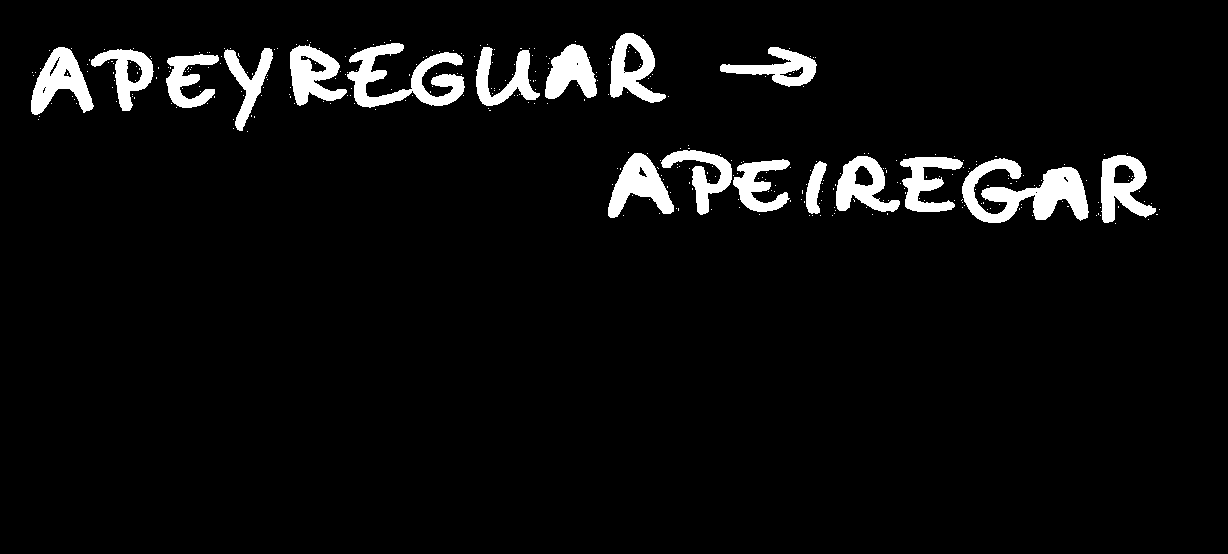 APEYREGUAR →
APEIREGAR